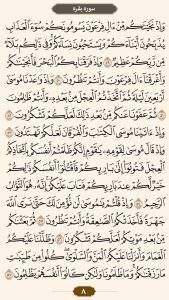 سوره بقره
وَإِذْ نَجَّيْنَٰكُم مِّنْ ءَالِ فِرْعَوْنَ يَسُومُونَكُمْ سُوٓءَ ٱلْعَذَابِ
يُذَبِّحُونَ أَبْنَآءَكُمْ وَيَسْتَحْيُونَ نِسَآءَكُمْ وَفِى ذَٰلِكُم بَلَآءٌ
مِّن رَّبِّكُمْ عَظِيمٌ ٤٩ وَإِذْ فَرَقْنَا بِكُمُ ٱلْبَحْرَ فَأَنجَيْنَٰكُمْ
وَأَغْرَقْنَآ ءَالَ فِرْعَوْنَ وَأَنتُمْ تَنظُرُونَ ٥٠ وَإِذْ وَٰعَدْنَا مُوسَىٰٓ
أَرْبَعِينَ لَيْلَةً ثُمَّ ٱتَّخَذْتُمُ ٱلْعِجْلَ مِنۢ بَعْدِهِۦ وَأَنتُمْ ظَٰلِمُونَ
٥١ ثُمَّ عَفَوْنَا عَنكُم مِّنۢ بَعْدِ ذَٰلِكَ لَعَلَّكُمْ تَشْكُرُونَ ٥٢
وَإِذْ ءَاتَيْنَا مُوسَى ٱلْكِتَٰبَ وَٱلْفُرْقَانَ لَعَلَّكُمْ تَهْتَدُونَ ٥٣
وَإِذْ قَالَ مُوسَىٰ لِقَوْمِهِۦ يَٰقَوْمِ إِنَّكُمْ ظَلَمْتُمْ أَنفُسَكُم بِٱتِّخَاذِكُمُ
ٱلْعِجْلَ فَتُوبُوٓا۟ إِلَىٰ بَارِئِكُمْ فَٱقْتُلُوٓا۟ أَنفُسَكُمْ ذَٰلِكُمْ
خَيْرٌ لَّكُمْ عِندَ بَارِئِكُمْ فَتَابَ عَلَيْكُمْ إِنَّهُۥ هُوَ ٱلتَّوَّابُ
ٱلرَّحِيمُ ٥٤ وَإِذْ قُلْتُمْ يَٰمُوسَىٰ لَن نُّؤْمِنَ لَكَ حَتَّىٰ نَرَى ٱللَّهَ
جَهْرَةً فَأَخَذَتْكُمُ ٱلصَّٰعِقَةُ وَأَنتُمْ تَنظُرُونَ ٥٥ ثُمَّ بَعَثْنَٰكُم
مِّنۢ بَعْدِ مَوْتِكُمْ لَعَلَّكُمْ تَشْكُرُونَ ٥٦ وَظَلَّلْنَا عَلَيْكُمُ
ٱلْغَمَامَ وَأَنزَلْنَا عَلَيْكُمُ ٱلْمَنَّ وَٱلسَّلْوَىٰ كُلُوا۟ مِن طَيِّبَٰتِ
مَا رَزَقْنَٰكُمْ وَمَا ظَلَمُونَا وَلَٰكِن كَانُوٓا۟ أَنفُسَهُمْ يَظْلِمُونَ ٥٧
٨